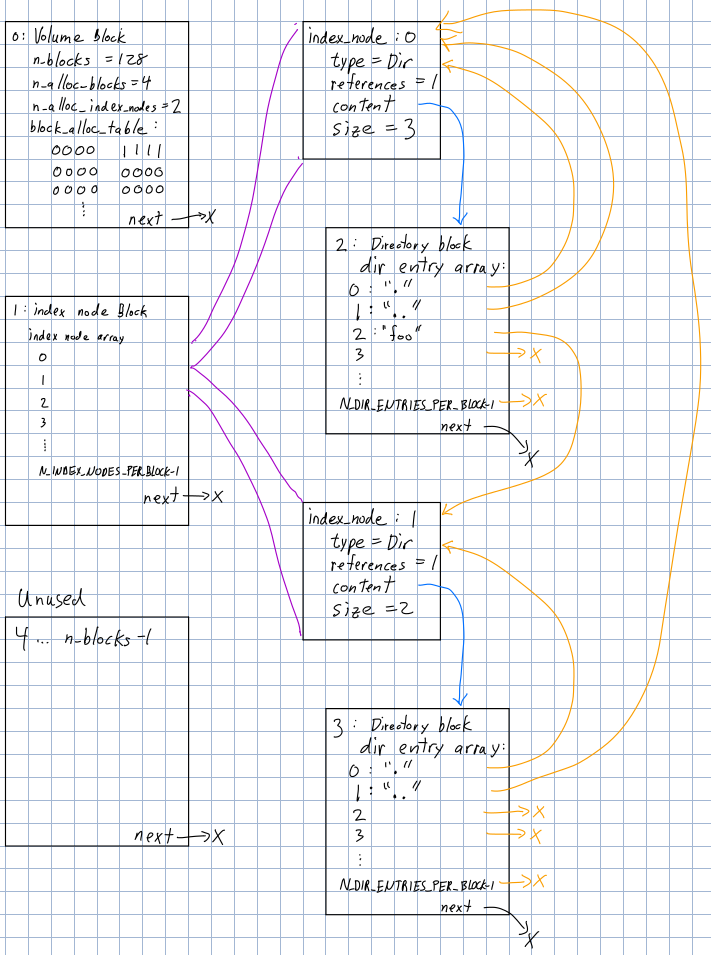 0: Volume Block
n_blocks = 128
n_alloc_blocks = 4
n_alloc_index_nodes = 2
block_alloc_table:
0000 1111
0000 0000
0000 0000
⋮
next → X
1: index node Block
index node array
0
1
2
3
⋮
N_INDEX_NODES_PER_BLOCK-1
next → X
Unused
4 ... n_blocks -1
next → X
index_node : 0
type = Dir
references = 1
content
size = 3
2: Directory block
dir entry array:
0 : "."
1 : ".."
2 : "foo"
3 → X
⋮
N_DIR_ENTRIES_PER_BLOCK-1 → X
next
X
index_node : 1
type = Dir
references = 1
content
size = 2
3: Directory block
dir entry array:
0 : "."
1 : ".."
2 → X
3 → X
⋮
N_DIR_ENTRIES_PER_BLOCK-1 → X
next
X